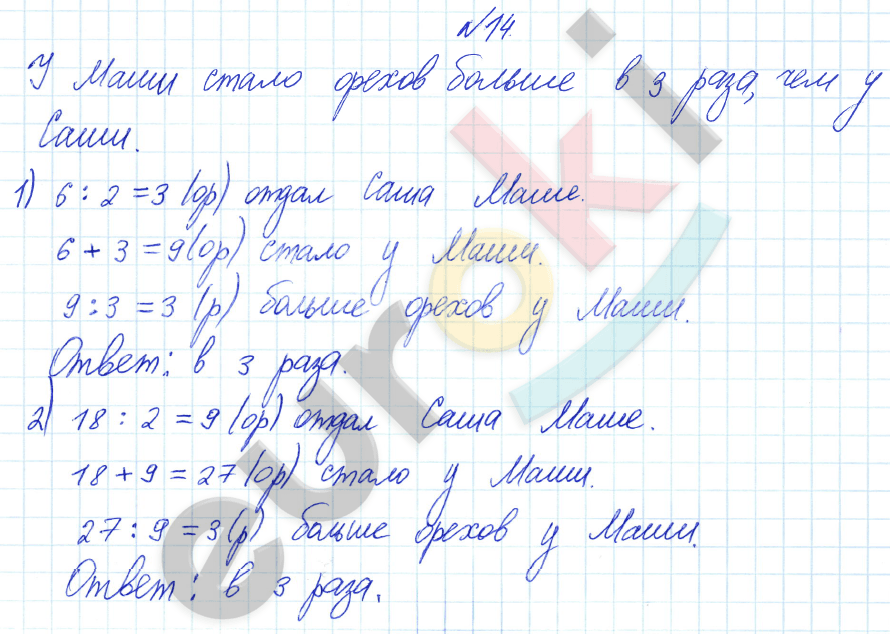 №14.
У Маши стало орехов больше в 3 раза, чем у
Саши.
1) 6 : 2 = 3 (ор) отдал Саша Маше.
6 + 3 = 9 (ор) стало у Маши.
9 : 3 = 3 (р) больше орехов у Маши.
Ответ: в 3 раза.
2) 18 : 2 = 9 (ор) отдал Саша Маше.
18 + 9 = 27 (ор) стало у Маши.
27 : 9 = 3 (р) больше орехов у Маши.
Ответ: в 3 раза.
euroki